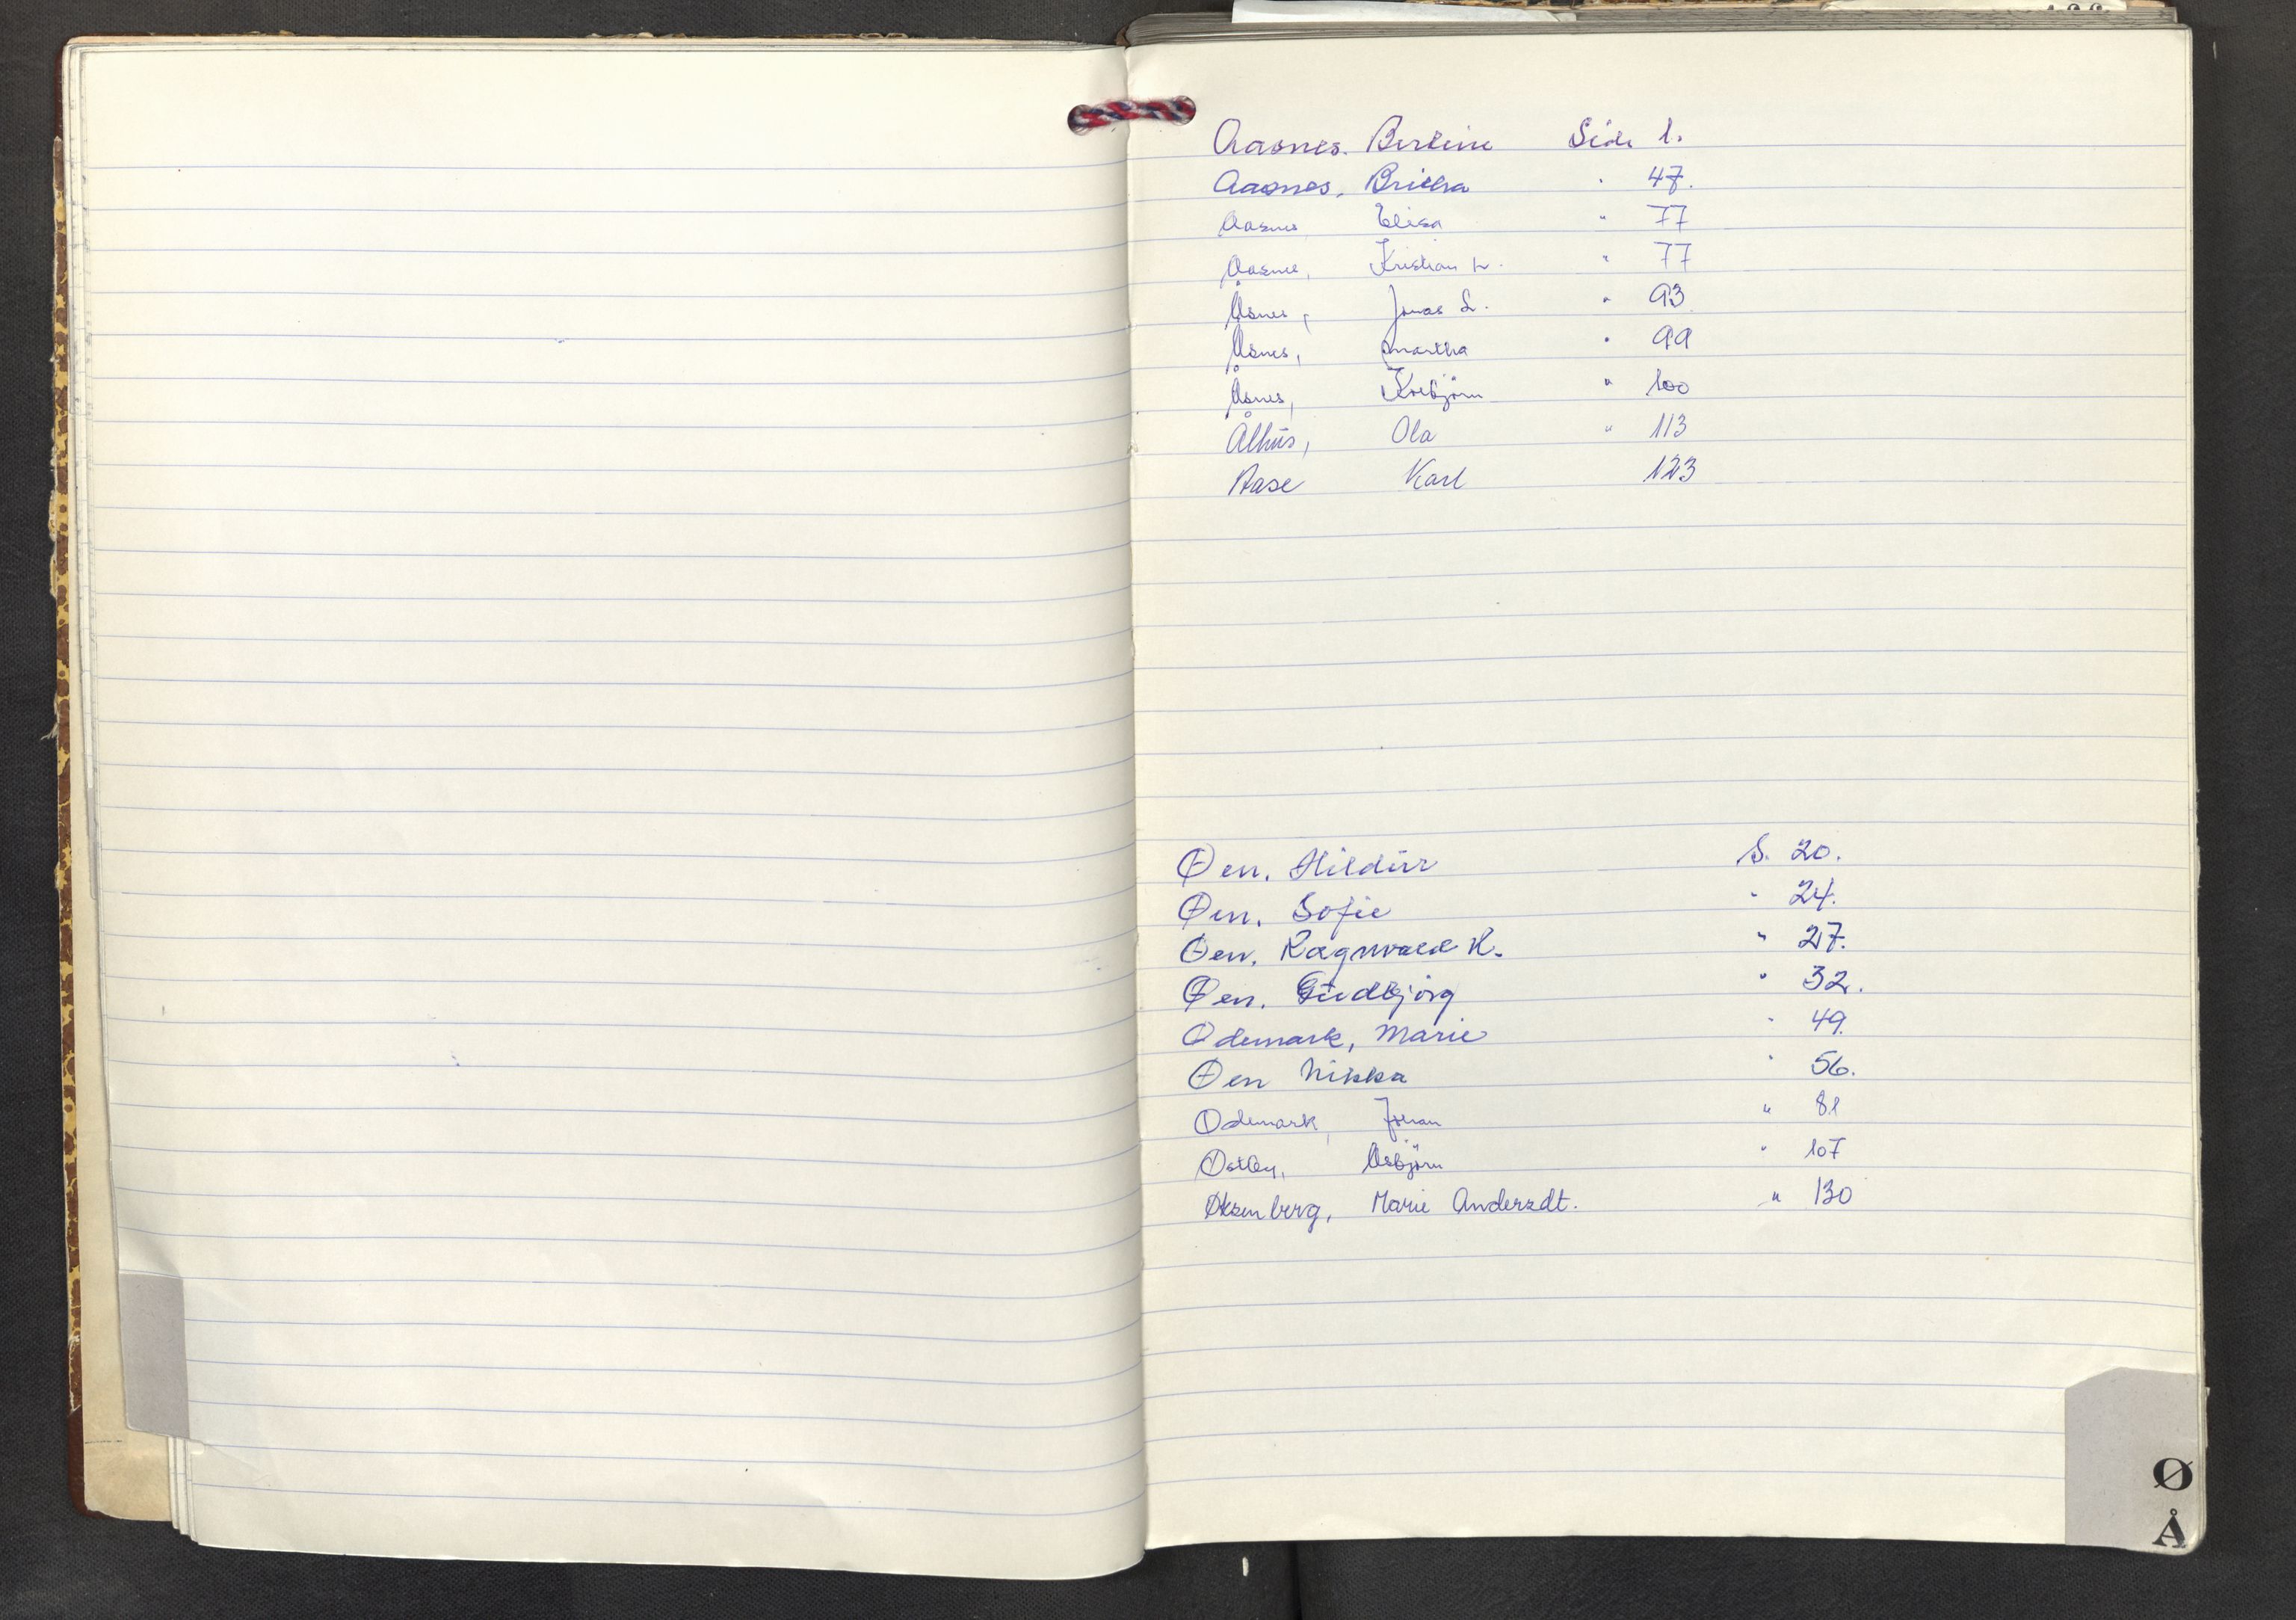 Aasnes. Bertine Side 1.
Aasnes, Britha " 47.
Aasnes Elisa " 77
Aasnes, Kristian L. " 77
Åsnes, Jonas L. " 93
Åsnes, Martha " 99
Åsnes, Torbjörn " 100
Ålhus, Ola " 113
Aase Karl 123
Øen. Hildur S. 20.
Øen. Sofie " 24.
Øen. Ragnvald R. " 27.
Øen. Gudbjørg " 32.
Ødemark, Marie " 49.
Øen Nikka " 56.
Ødemark, Johan " 81
Østby, Asbjörn " 107
Øksenberg, Marie Andersdt. " 130
Ø
Å